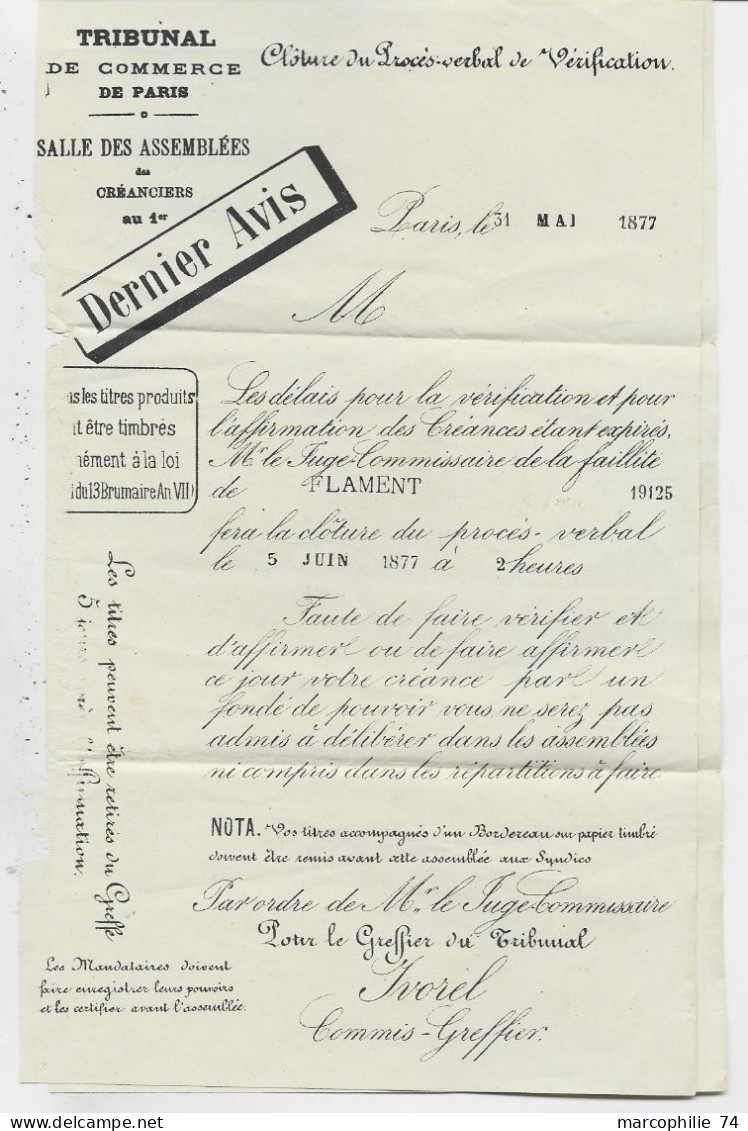 TRIBUNAL
DE COMMERCE
DE PARIS
SALLE DES ASSEMBLÉES
des
CRÉANCIERS
au 1er
Clôture du Procès-verbal de Vérification.
Dernier Avis
Paris, le 31 MAI 1877
M
les titres produits
être timbrés
à la loi
du 13 Brumaire An VII)
Les délais pour la vérification et pour
l'affirmation des Créances étant expirés,
Mr le Juge-Commissaire de la faillite
de FLAMENT 19125
fera la clôture du procès-verbal
le 5 JUIN 1877 à 2 heures
Faute de faire vérifier et
d'affirmer ou de faire affirmer
ce jour votre créance par un
fondé de pouvoir vous ne serez pas
admis à délibérer dans les assemblées
ni compris dans les répartitions à faire
Les titres peuvent être retirés du Greffe
5 jours
NOTA. Vos titres accompagnés d'un Bordereau sur papier timbré
doivent être remis avant cette assemblée aux Syndics
Par ordre de Mr le Juge-Commissaire
Pour le Greffier du Tribunal
Ivorel
Commis-Greffier.
Les Mandataires doivent
faire enregistrer leurs pouvoirs
et les certifier avant l'assemblée.
marcophilie 74